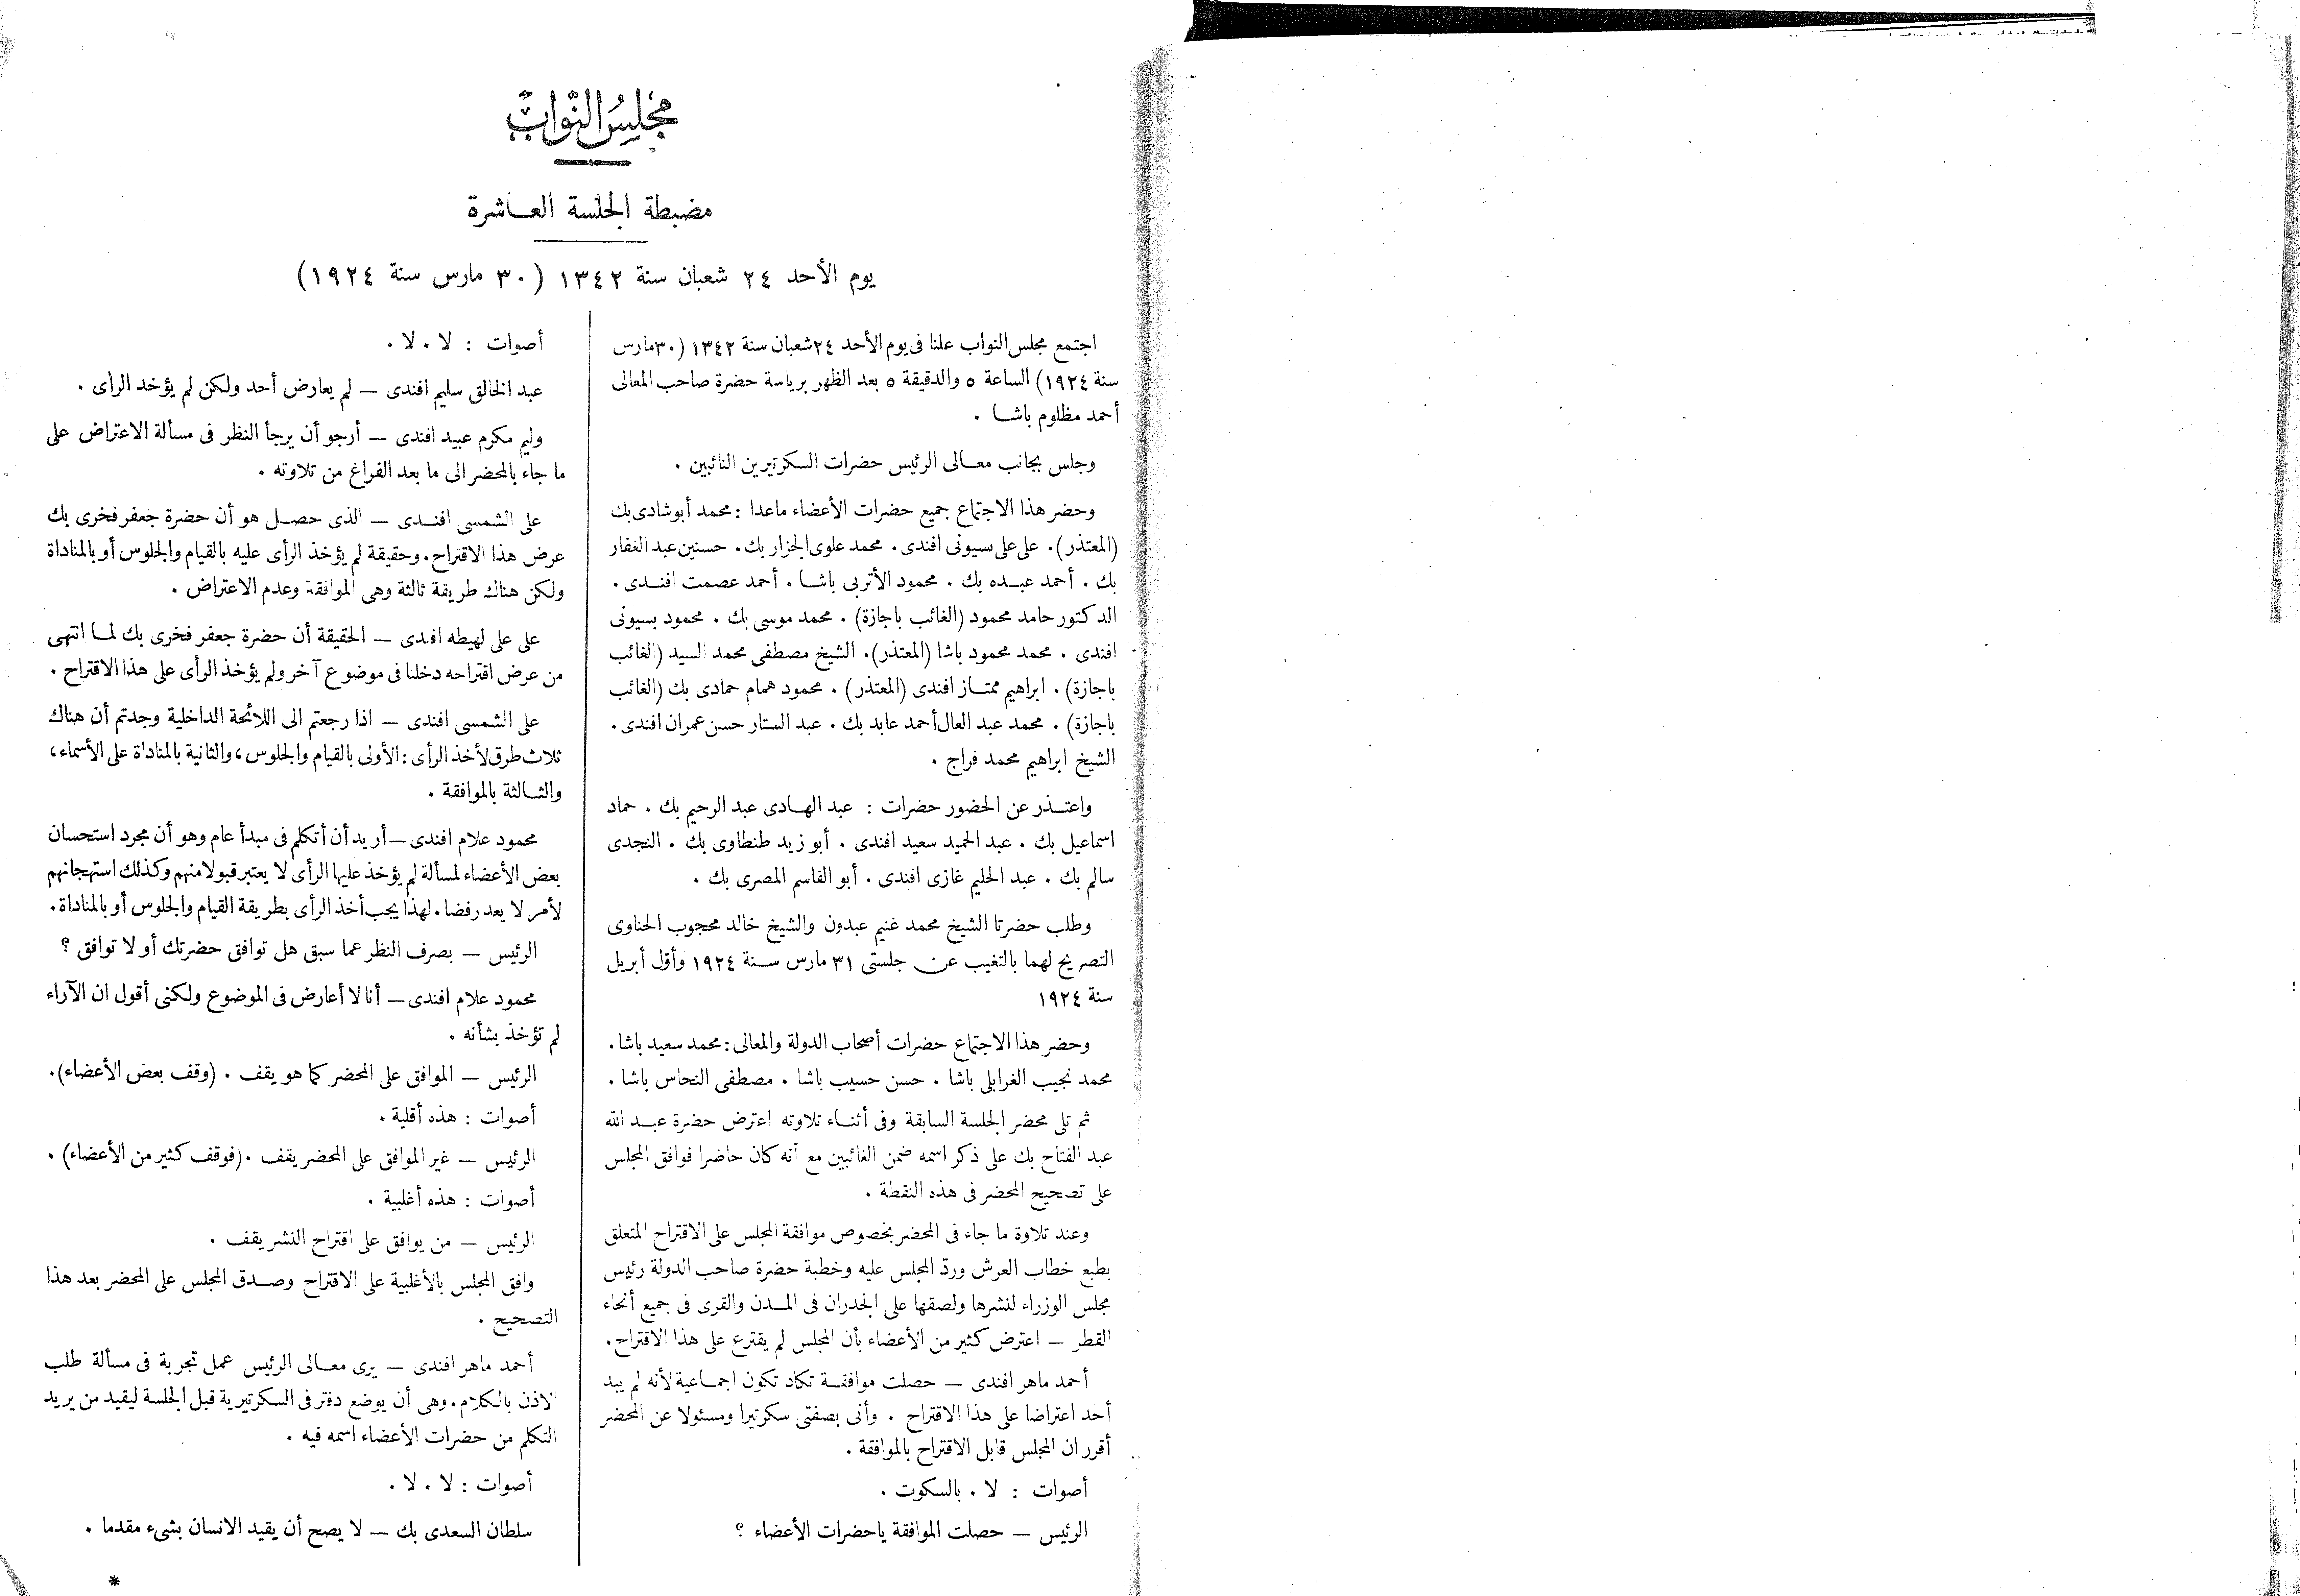 مجلس النواب
مضبطة الجلسة العاشرة
يوم الأحد ٢٤ شعبان سنة ١٣٤٢ (٣٠ مارس سنة ١٩٢٤)
اجتمع مجلس النواب علنا فى يوم الأحد ٢٤ شعبان سنة ١٣٤٢ (٣٠ مارس
سنة ١٩٢٤) الساعة ٥ والدقيقة ٥ بعد الظهر برياسة حضرة صاحب المعالى
أحمد مظلوم باشا .
وجلس بجانب معالى الرئيس حضرات السكرتيرين النائبين .
وحضر هذا الاجتماع جميع حضرات الأعضاء ماعدا : محمد أبوشادى بك
(المعتذر) . على على بسيونى افندى . محمد علوى الجزار بك . حسنين عبد الغفار
بك . أحمد عبده بك . محمود الأتربى باشا . أحمد عصمت افندى .
الدكتور حامد محمود (الغائب باجازة) . محمد موسى بك . محمود بسيونى
افندى . محمد محمود باشا (المعتذر) . الشيخ مصطفى محمد السيد (الغائب
باجازة) . ابراهيم ممتاز افندى (المعتذر) . محمود همام حمادى بك (الغائب
باجازة) . محمد عبد العال أحمد عابد بك . عبد الستار حسن عمران افندى .
الشيخ ابراهيم محمد فراج .
واعتذر عن الحضور حضرات : عبد الهادى عبد الرحيم بك . حماد
اسماعيل بك . عبد الحميد سعيد افندى . أبو زيد طنطاوى بك . النجدى
سالم بك . عبد الحليم غازى افندى . أبو القاسم المصرى بك .
وطلب حضرتا الشيخ محمد غنيم عبدون والشيخ خالد محجوب الحناوى
التصريح لهما بالتغيب عن جلستى ٣١ مارس سنة ١٩٢٤ وأوّل أبريل
سنة ١٩٢٤
وحضر هذا الاجتماع حضرات أصحاب الدولة والمعالى : محمد سعيد باشا .
محمد نجيب الغرابلى باشا . حسن حسيب باشا . مصطفى النحاس باشا .
ثم تلى محضر الجلسة السابقة وفى أثناء تلاوته اعترض حضرة عبد الله
عبد الفتاح بك على ذكر اسمه ضمن الغائبين مع أنه كان حاضرا فوافق المجلس
على تصحيح المحضر فى هذه النقطة .
وعند تلاوة ما جاء فى المحضر بخصوص موافقة المجلس على الاقتراح المتعلق
بطبع خطاب العرش وردّ المجلس عليه وخطبة حضرة صاحب الدولة رئيس
مجلس الوزراء لنشرها ولصقها على الجدران فى المدن والقرى فى جميع أنحاء
القطر — اعترض كثير من الأعضاء بأن المجلس لم يقترع على هذا الاقتراح .
أحمد ماهر افندى — حصلت موافقة تكاد تكون اجماعية لأنه لم يبد
أحد اعتراضا على هذا الاقتراح . وأنى بصفتى سكرتيرا ومسئولا عن المحضر
أقرر ان المجلس قابل الاقتراح بالموافقة .
أصوات : لا . بالسكوت .
الرئيس — حصلت الموافقة ياحضرات الأعضاء ؟
أصوات : لا . لا .
عبد الخالق سليم افندى — لم يعارض أحد ولكن لم يؤخد الرأى .
وليم مكرم عبيد افندى — أرجو أن يرجأ النظر فى مسألة الاعتراض على
ما جاء بالمحضر الى ما بعد الفراغ من تلاوته .
على الشمسى افندى — الذى حصل هو أن حضرة جعفر فخرى بك
عرض هذا الاقتراح . وحقيقة لم يؤخذ الرأى عليه بالقيام والجلوس أو بالمناداة
ولكن هناك طريقة ثالثة وهى الموافقة وعدم الاعتراض .
على على لهيطه افندى — الحقيقة أن حضرة جعفر فخرى بك لما انتهى
من عرض اقتراحه دخلنا فى موضوع آخر ولم يؤخذ الرأى على هذا الاقتراح .
على الشمسى افندى — اذا رجعتم الى اللائحة الداخلية وجدتم أن هناك
ثلاث طرق لأخذ الرأى : الأولى بالقيام والجلوس ، والثانية بالمناداة على الأسماء ،
والثالثة بالموافقة .
محمود علام افندى — أريد أن أتكلم فى مبدأ عام وهو أن مجرد استحسان
بعض الأعضاء لمسألة لم يؤخذ عليها الرأى لا يعتبر قبولا منهم وكذلك استهجانهم
لأمر لا يعد رفضا . لهذا يجب أخذ الرأى بطريقة القيام والجلوس أو بالمناداة .
الرئيس — بصرف النظر عما سبق هل توافق حضرتك أو لا توافق ؟
محمود علام افندى — أنا لا أعارض فى الموضوع ولكنى أقول ان الآراء
لم تؤخذ بشأنه .
الرئيس — الموافق على المحضر كما هو يقف . (وقف بعض الأعضاء) .
أصوات : هذه أقلية .
الرئيس — غير الموافق على المحضر يقف . (فوقف كثير من الأعضاء) .
أصوات : هذه أغلبية .
الرئيس — من يوافق على اقتراح النشر يقف .
وافق المجلس بالأغلبية على الاقتراح وصدق المجلس على المحضر بعد هذا
التصحيح .
أحمد ماهر افندى — يرى معالى الرئيس عمل تجربة فى مسألة طلب
الاذن بالكلام . وهى أن يوضع دفتر فى السكرتيرية قبل الجلسة ليقيد من يريد
التكلم من حضرات الأعضاء اسمه فيه .
أصوات : لا . لا .
سلطان السعدى بك — لا يصح أن يقيد الانسان بشىء مقدما .
*